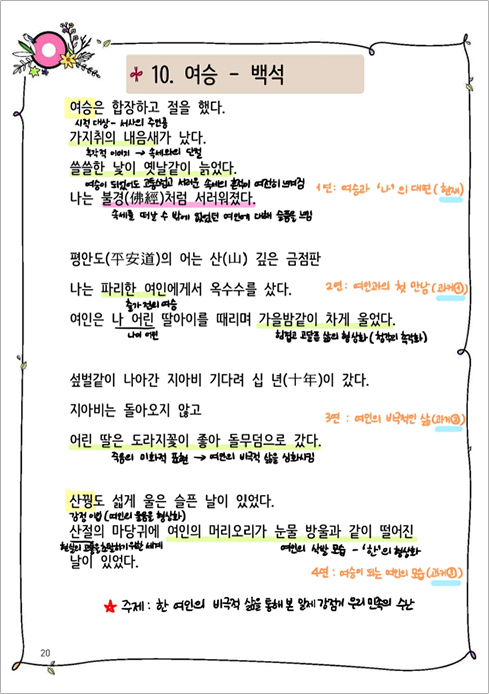 10. 여승 - 백석
여승은 합장하고 절을 했다.
시적 대상 - 서사의 주인공
가지취의 내음새가 났다.
후각적 이미지 → 속세와의 단절
쓸쓸한 낯이 옛날같이 늙었다.
여승이 되었어도 고통스럽고 서러운 속세의 흔적이 여전히 느껴짐
1연: 여승과 '나'의 대면 (현재)
나는 불경(佛經)처럼 서러워졌다.
속세를 떠날 수 밖에 없었던 여인에 대해 슬픔을 느낌
평안도(平安道)의 어는 산(山) 깊은 금점판
나는 파리한 여인에게서 옥수수를 샀다.
2연: 여인과의 첫 만남 (과거①)
출가 전의 여승
여인은 나 어린 딸아이를 때리며 가을밤같이 차게 울었다.
나이 어린
힘겹고 고달픈 삶의 형상화 (청각의 촉각화)
섶벌같이 나아간 지아비 기다려 십 년(十年)이 갔다.
지아비는 돌아오지 않고
3연 : 여인의 비극적인 삶 (과거②)
어린 딸은 도라지꽃이 좋아 돌무덤으로 갔다.
죽음의 미화적 표현 → 여인의 비극적 삶을 심화시킴
산꿩도 섧게 울은 슬픈 날이 있었다.
감정 이입 (여인의 울음을 형상화)
산절의 마당귀에 여인의 머리오리가 눈물 방울과 같이 떨어진
현실의 고통을 초월하기 위한 세계
여인의 삭발 모습 - '한'의 형상화
날이 있었다.
4연 : 여승이 되는 여인의 모습 (과거③)
주제 : 한 여인의 비극적 삶을 통해 본 일제 강점기 우리 민족의 수난
20